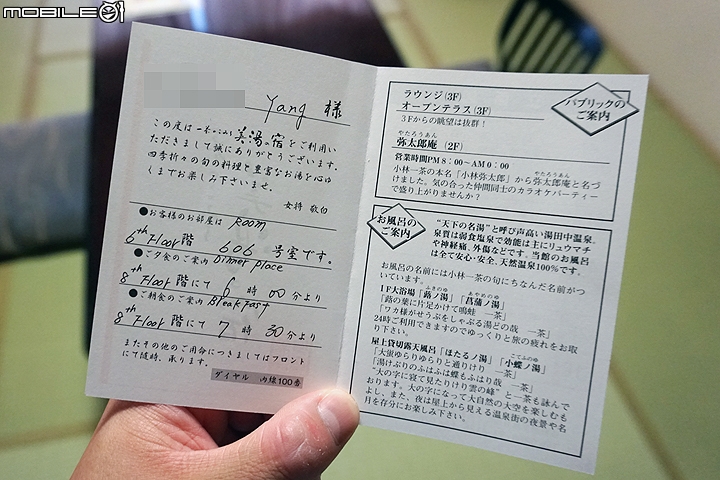 MOBILE01
Yang 様
この度は一茶のこみち美湯の宿をご利用い
ただきまして誠にありがとうございます。
四季折々の旬の料理と豊富なお湯を心ゆ
くまでお楽しみ下さいませ。
女将 敬白
●お客様のお部屋は Room
6th Floor 階 606 号室です。
●ご夕食のご案内 Dinner place
8th Floor 階にて 6 時 00 分より
●ご朝食のご案内 Breakfast
8th Floor 階にて 7 時 30 分より
またその他のご用分につきましてはフロント
にて随時、承ります。
ダイヤル 内線100番
パブリックの
ご案内
ラウンジ(3F)
オープンテラス(3F)
3Fからの眺望は抜群!
やたろうあん
弥太郎庵 (2F)
営業時間PM 8:00~AM 0:00
やたろうあん
小林一茶の本名「小林弥太郎」から弥太郎庵と名づ
けました。気の合った仲間同士のカラオケパーティー
で盛り上がりませんか?
お風呂の
ご案内
"天下の名湯"と呼び声高い湯田中温泉。
泉質は弱食塩泉で効能は主にリュウマチ
や神経痛、外傷などです。当館のお風呂
は全て安心・安全、天然温泉100%です。
お風呂の名前には小林一茶の句にちなんだ名前がつ
いています。
ふきのゆ あやめのゆ
1F大浴場「蕗ノ湯」「菖蒲ノ湯」
「蕗の葉に片足かけて鳴蛙 一茶」
「ワカ様がせうぶをしゃぶる湯どの哉 一茶」
24時ご利用できますのでゆっくりと旅の疲れをお取
り下さい。
こてふのゆ
屋上貸切露天風呂「ほたるノ湯」「小蝶ノ湯」
「大蛍ゆらりゆらりと通りけり 一茶」
「湯けぶりのふはふは蝶もふはり哉 一茶」
"大の字に寝て見たりけり雲の峰"と一茶も詠んで
おります。大の字になって大自然の大空を楽しむも
よし、また、夜は屋上から見える温泉街の夜景や名
月を存分にお楽しみ下さい。